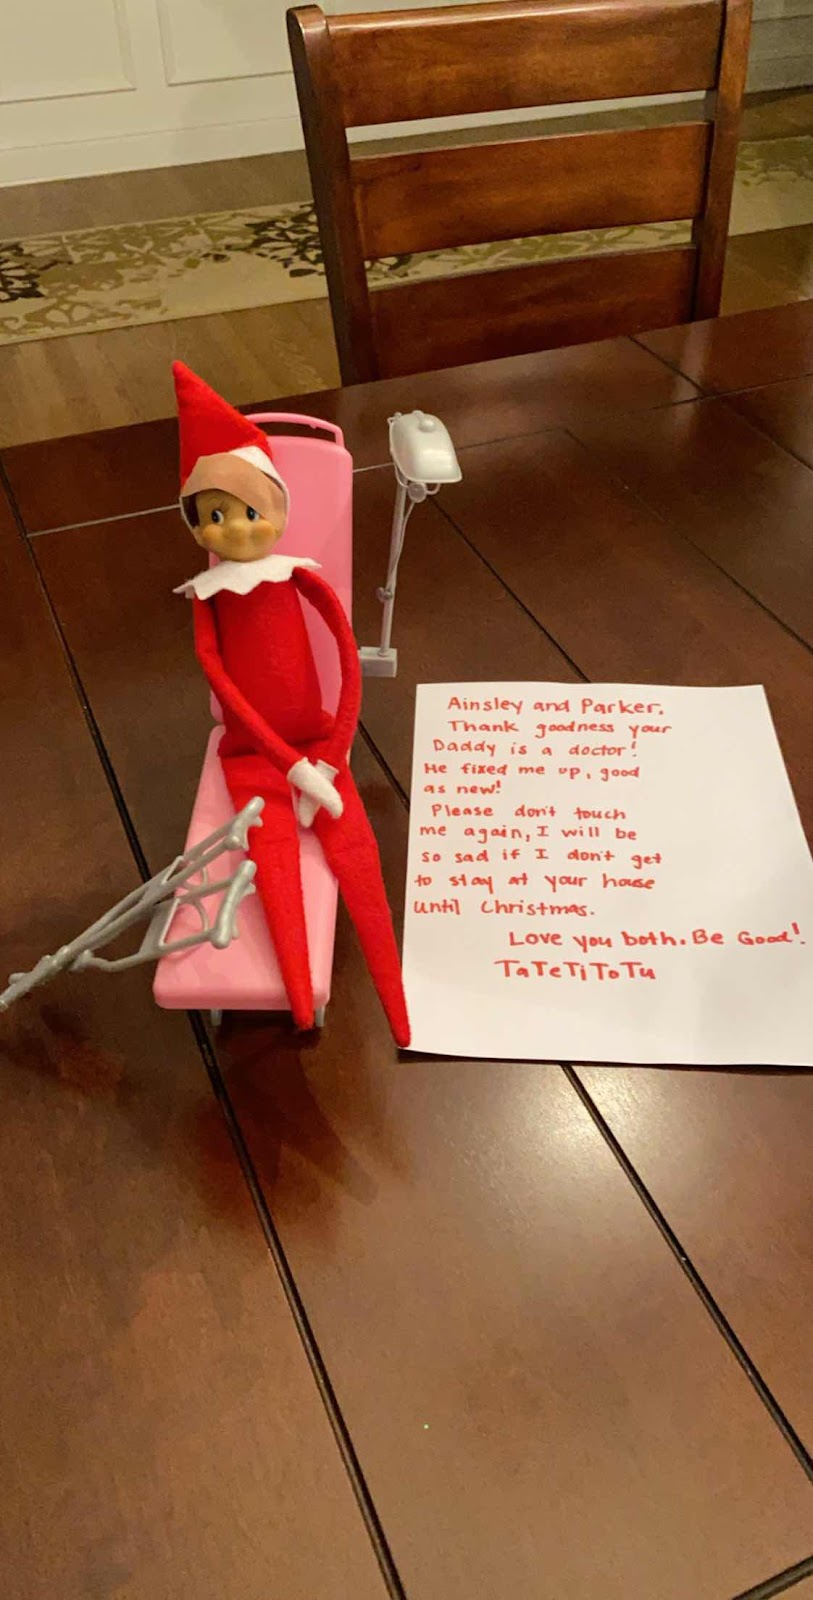 Ainsley and Parker,
Thank goodness your
Daddy is a doctor!
He fixed me up, good
as new!
Please don't touch
me again, I will be
so sad if I don't get
to stay at your house
until Christmas.
Love you both. Be Good!
TaTeTiToTu